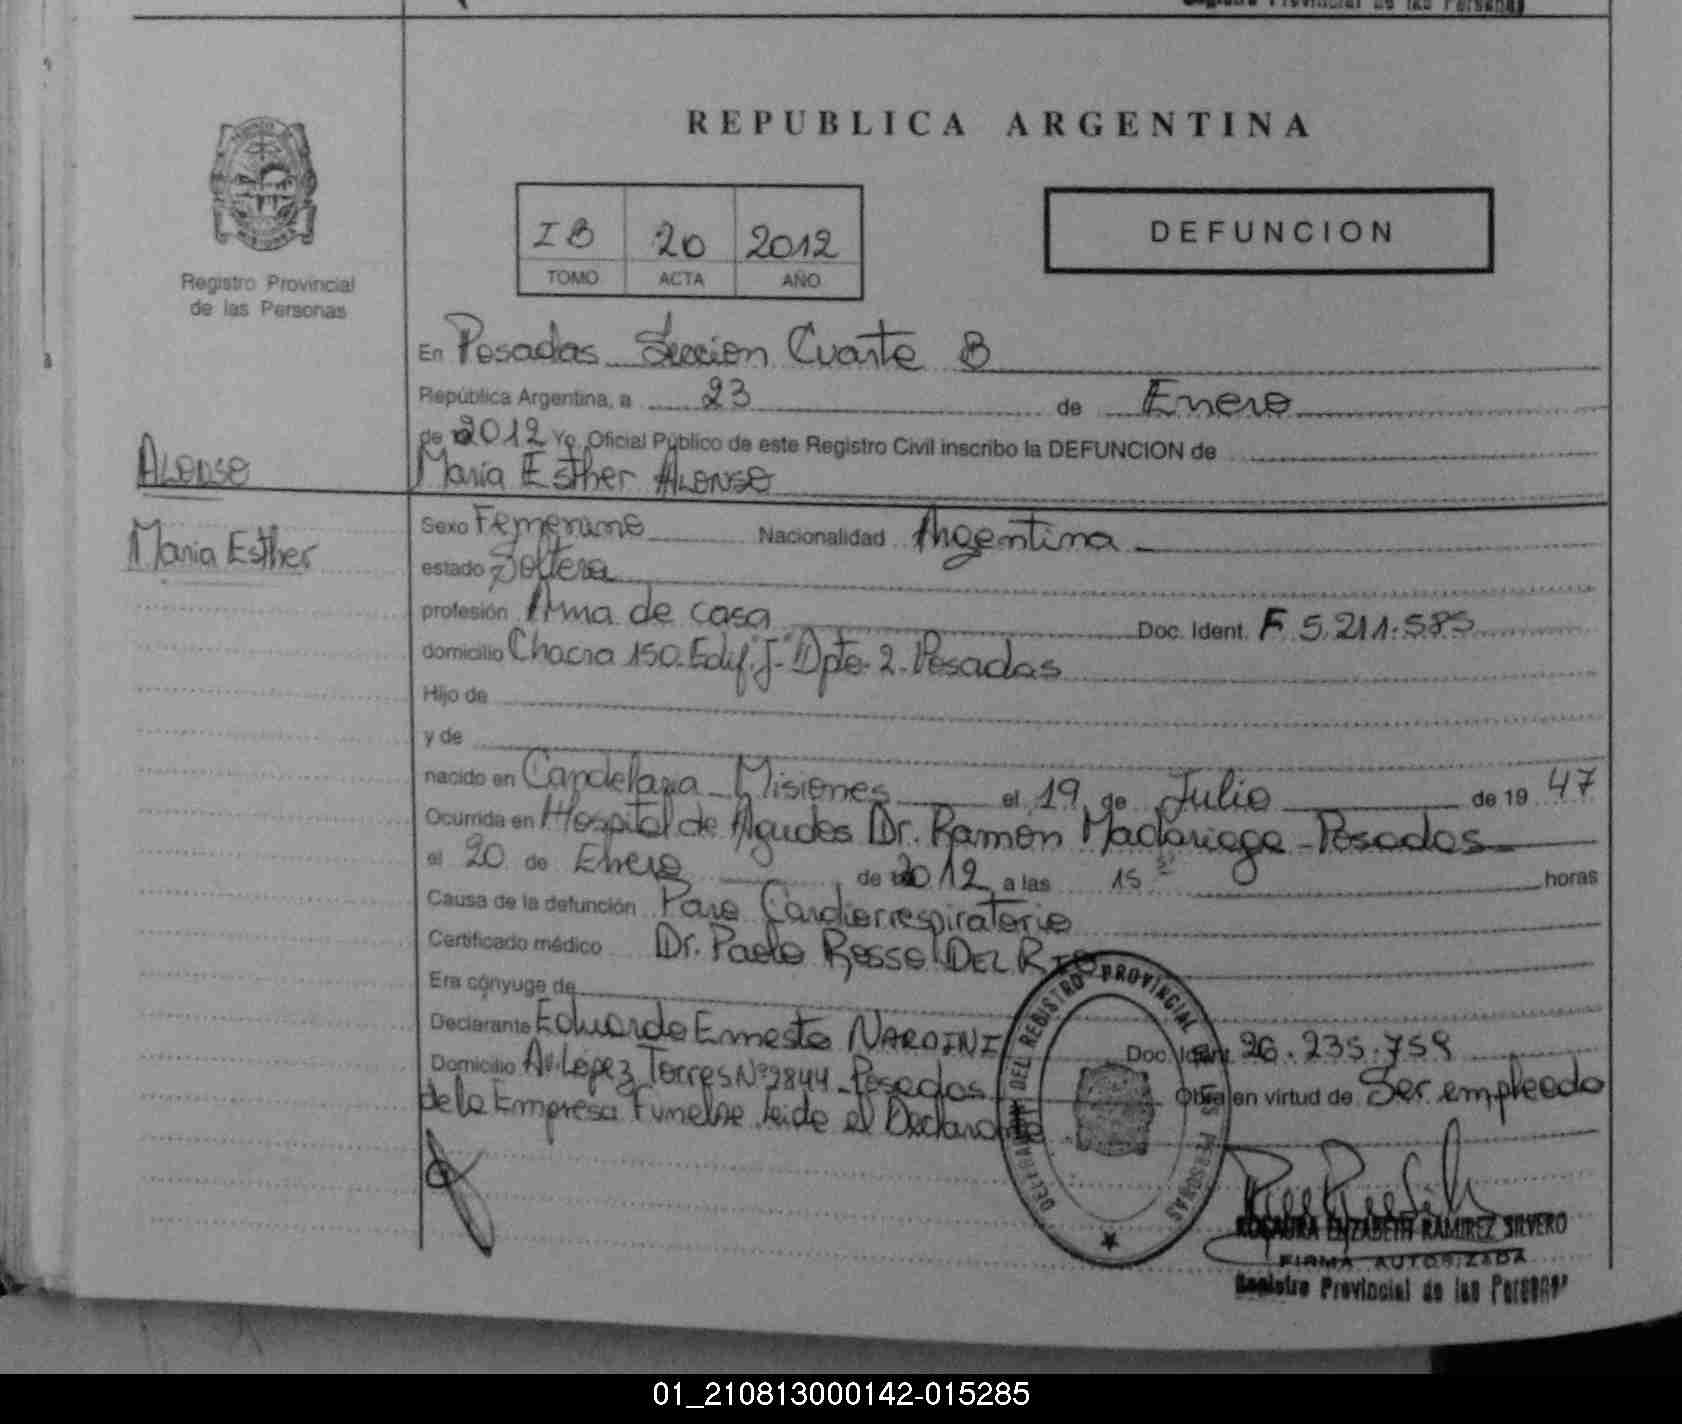 Registro Provincial de las Personas
REPUBLICA ARGENTINA
IB 20 2012
TOMO ACTA AÑO
DEFUNCION
Registro Provincial
de las Personas
En Posadas Seccion Cuarta B
República Argentina, a 23 de Enero
de 2012 Yo, Oficial Público de este Registro Civil inscribo la DEFUNCION de
Maria Esther ALONSO
ALONSO
Maria Esther
Sexo Femenino Nacionalidad Argentina
estado Soltera
profesión Ama de casa Doc. Ident. F 5.211.585
domicilio Chacra 150-Edif."J"-Dpto-2-Posadas
Hijo de
y de
nacido en Candelaria - Misiones el 19 de Julio de 19 47
Ocurrida en Hospital de Agudos Dr. Ramon Madariaga - Posadas
el 20 de Enero de 2012 a las 15 horas
Causa de la defunción Paro Cardiorrespiratorio
Certificado médico Dr. Paolo Rosso DEL RIO
Era cónyuge de
Declarante Eduardo Ernesto NARDINI Doc. Ident. 26.235.759
Domicilio Av. Lopez Torres Nº 2844 - Posadas Obra en virtud de Ser empleado
de la Empresa Funebre. Leida el Declarante
DELEGACION DEL REGISTRO PROVINCIAL DE LAS PERSONAS
ROSAURA ELIZABETH RAMIREZ SILVERO
FIRMA AUTORIZADA
Registro Provincial de las Personas
01_210813000142-015285